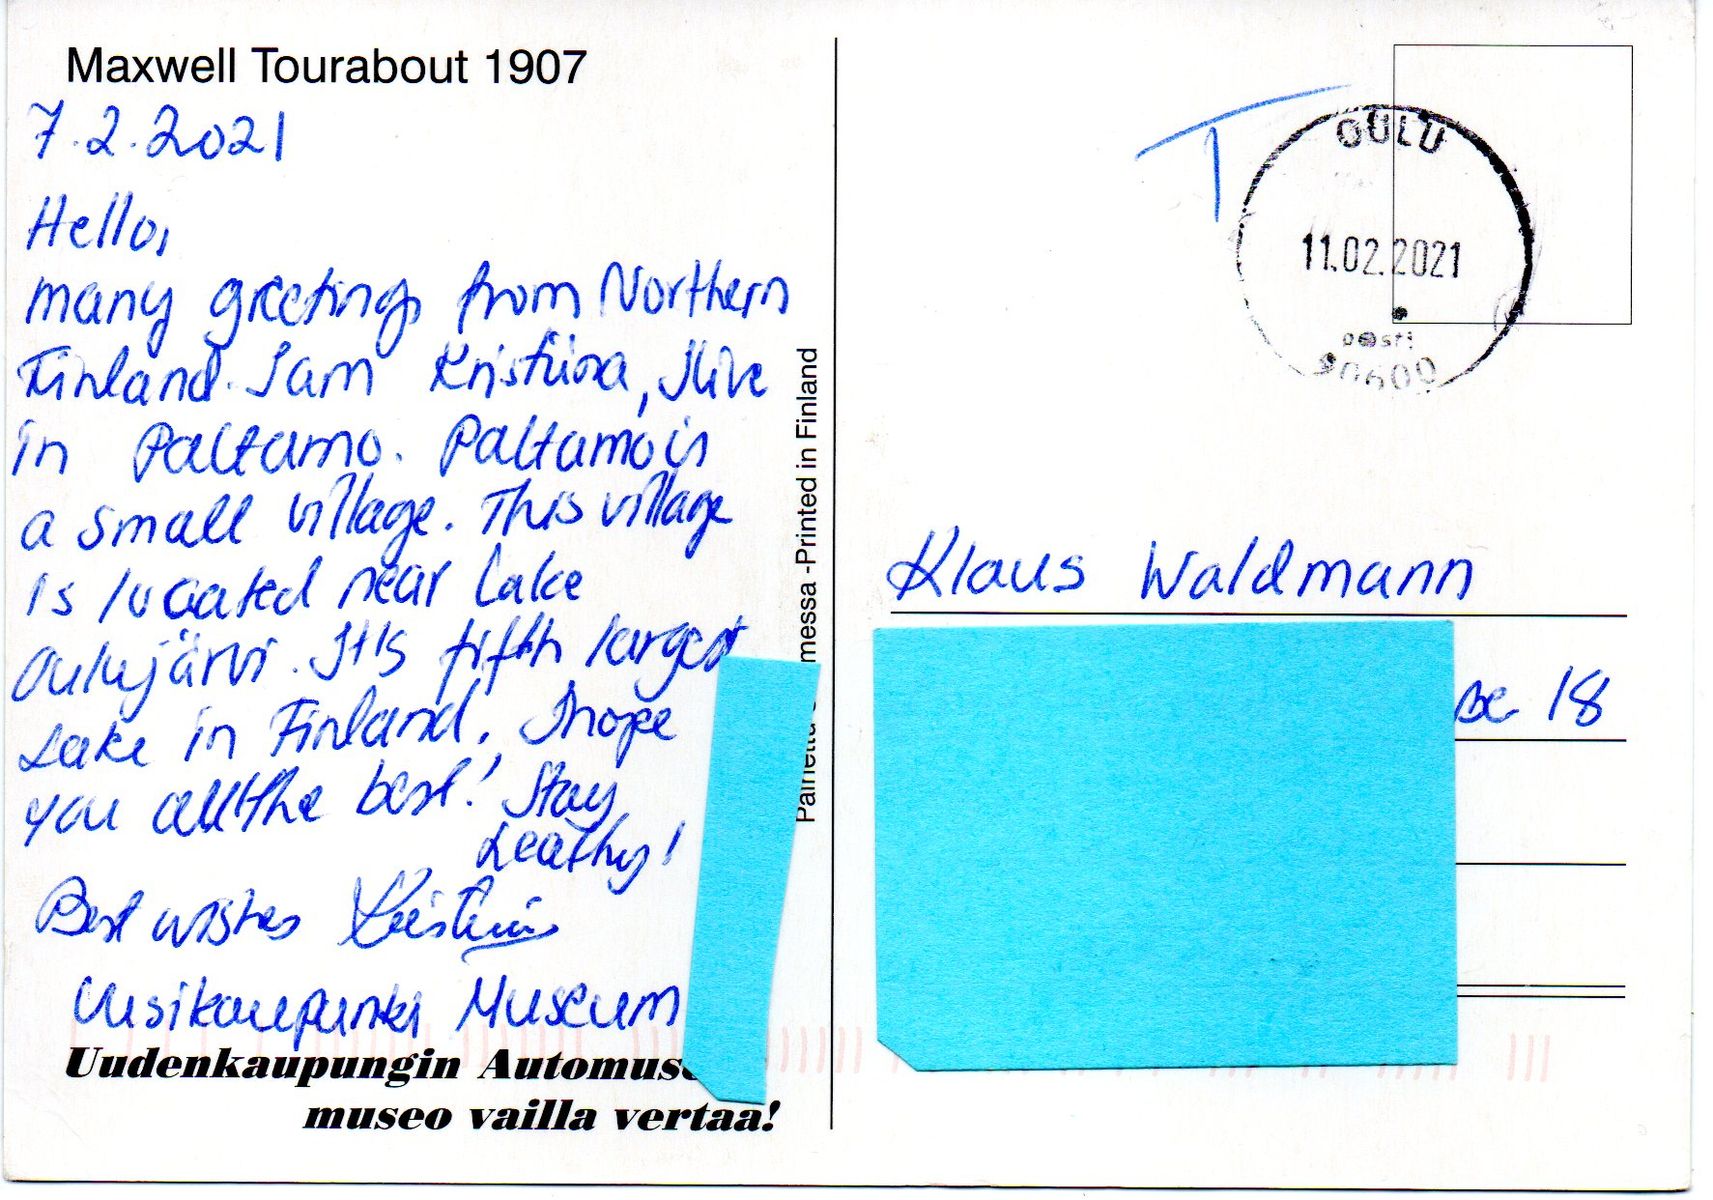 Maxwell Tourabout 1907
7.2.2021
Hello,
many greetings from Northern
Finland. I am Kristiina, I live
in Paltamo. Paltamo is
a small village. This village
is located near Lake
Oulujärvi. It's fifth largest
Lake in Finland. I hope
you all the best! Stay
Leathy!
Best wishes Kristiina
Uusikaupunki Museum
Uudenkaupungin Automus
museo vailla vertaa!
messa -Printed in Finland
T
OULU
11.02.2021
posti
90600
Klaus Waldmann
18